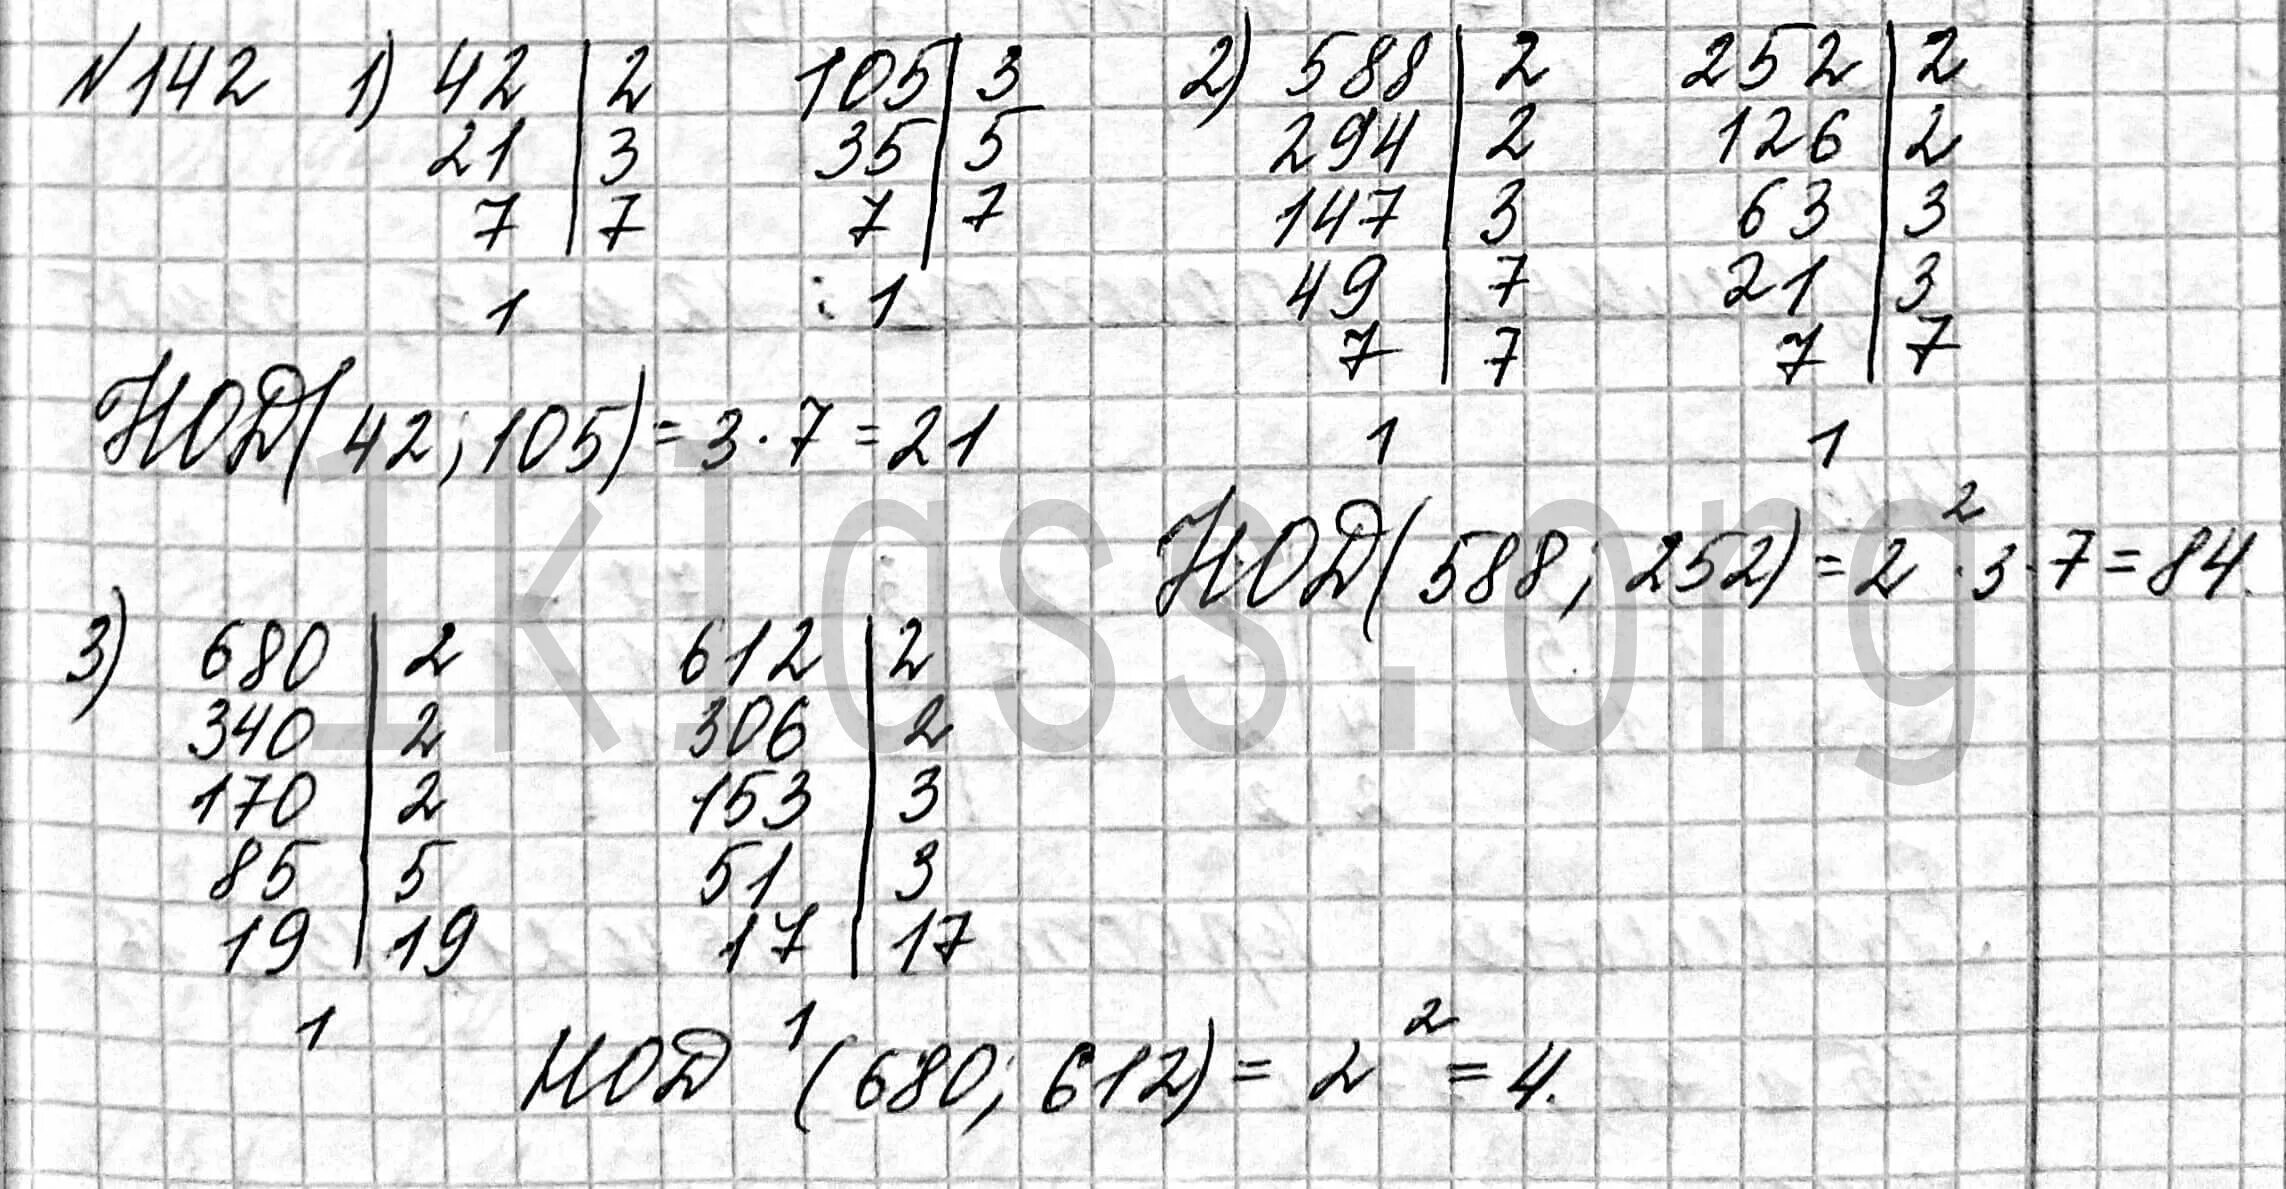 №142 1) 42 | 2 105 | 3
21 | 3 35 | 5
7 | 7 7 | 7
1 1
НОД(42; 105) = 3 · 7 = 21
2) 588 | 2 252 | 2
294 | 2 126 | 2
147 | 3 63 | 3
49 | 7 21 | 3
7 | 7 7 | 7
1 1
НОД(588; 252) = 2² · 3 · 7 = 84.
3) 680 | 2 612 | 2
340 | 2 306 | 2
170 | 2 153 | 3
85 | 5 51 | 3
19 | 19 17 | 17
1 1
НОД (680; 612) = 2² = 4.
1klass.org